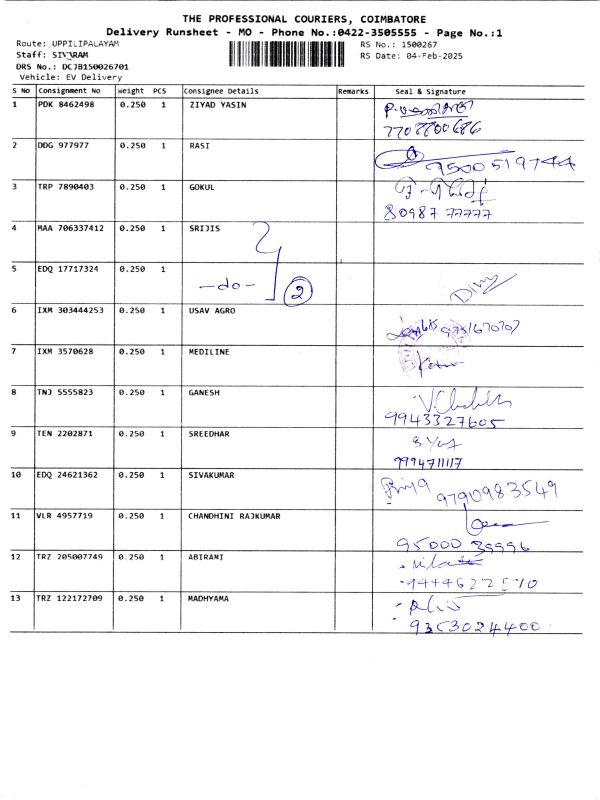 THE PROFESSIONAL COURIERS, COIMBATORE
Delivery Runsheet - MO - Phone No.:0422-3505555 - Page No.:1
Route: UPPILIPALAYAM RS No.: 1500267
Staff: SIVARAM RS Date: 04-Feb-2025
DRS No.: DCJB150026701
Vehicle: EV Delivery
S No Consignment No Weight PCS Consignee Details Remarks Seal & Signature
1 PDK 8462498 0.250 1 ZIYAD YASIN
7708800686
2 DDG 977977 0.250 1 RASI
9500519744
3 TRP 7890403 0.250 1 GOKUL
80987 77777
4 MAA 706337412 0.250 1 SRIJIS
5 EDQ 17717324 0.250 1 -do- 2
6 IXM 303444253 0.250 1 USAV AGRO
7 IXM 3570628 0.250 1 MEDILINE
8 TNJ 5555823 0.250 1 GANESH
9943327605
9 TEN 2202871 0.250 1 SREEDHAR
9994711117
10 EDQ 24621362 0.250 1 SIVAKUMAR Priya 9790983549
11 VLR 4957719 0.250 1 CHANDHINI RAJKUMAR
95000 39996
12 TRZ 205007749 0.250 1 ABIRAMI
13 TRZ 122172709 0.250 1 MADHYAMA